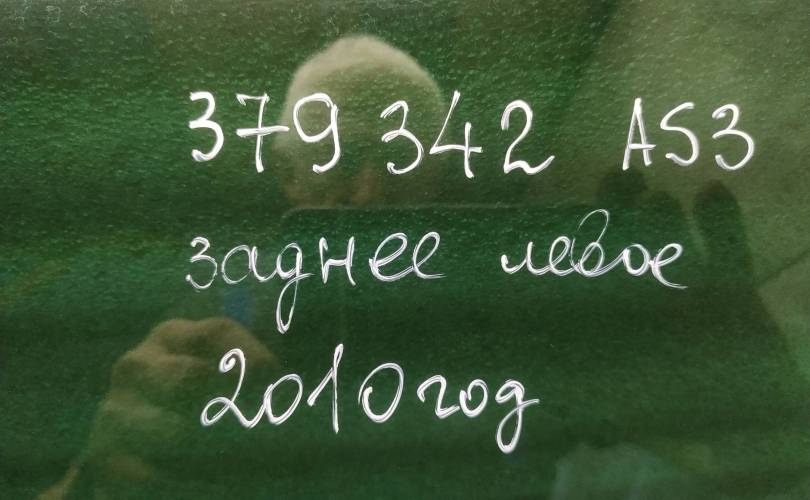 379 342 AS3
заднее левое
2010 год